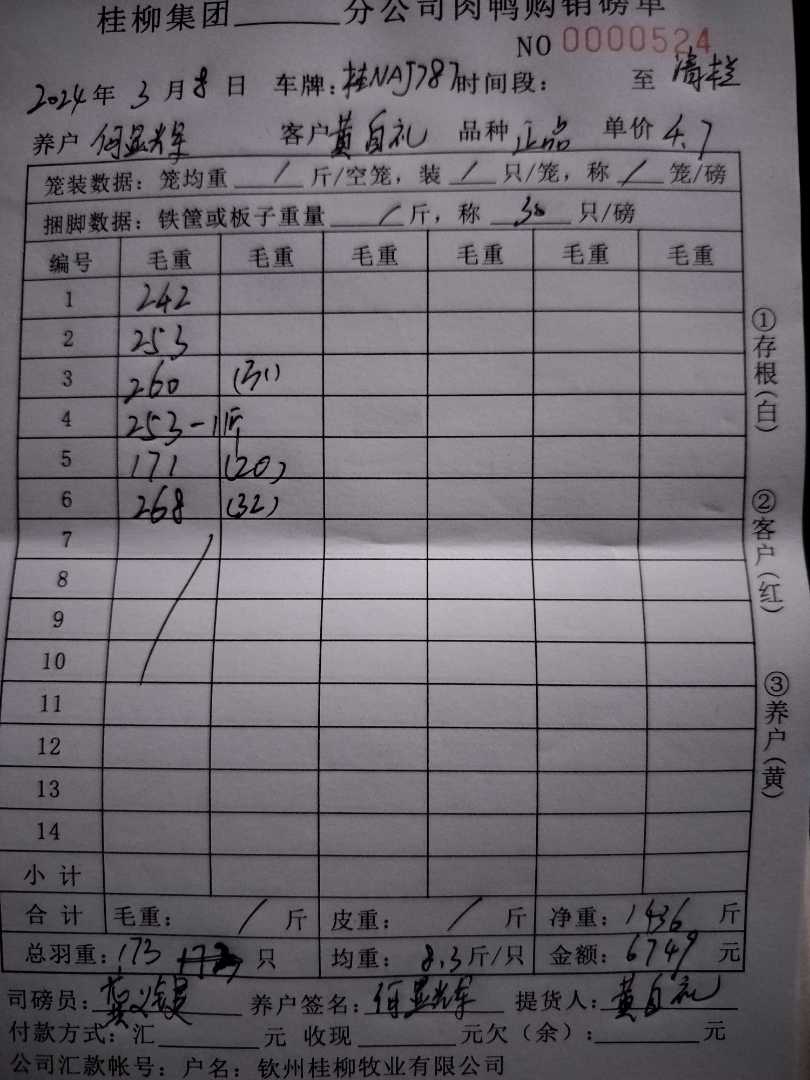 桂柳集团______分公司肉鸭购销磅单
NO 0000524
2024年 3月8日 车牌:桂NAJ787 时间段: 至 清栏
养户 何显光军 客户 黄自礼 品种 正品 单价 4.7
笼装数据:笼均重 / 斤/空笼,装 / 只/笼,称 / 笼/磅
捆脚数据:铁筐或板子重量 / 斤,称 30 只/磅
编号 毛重 毛重 毛重 毛重 毛重 毛重
1 242
2 253
3 260 (31)
4 253-1斤
5 171 (20)
6 268 (32)
7
8
9
10
11
12
13
14
小计
合计 毛重: / 斤 皮重: / 斤 净重:1436 斤
总羽重:173 只 均重:8.3斤/只 金额:6749 元
司磅员: 养户签名:何显光军 提货人:黄自礼
付款方式:汇______元 收现______元欠(余):______元
公司汇款帐号:户名:钦州桂柳牧业有限公司
①存根(白)
②客户(红)
③养户(黄)